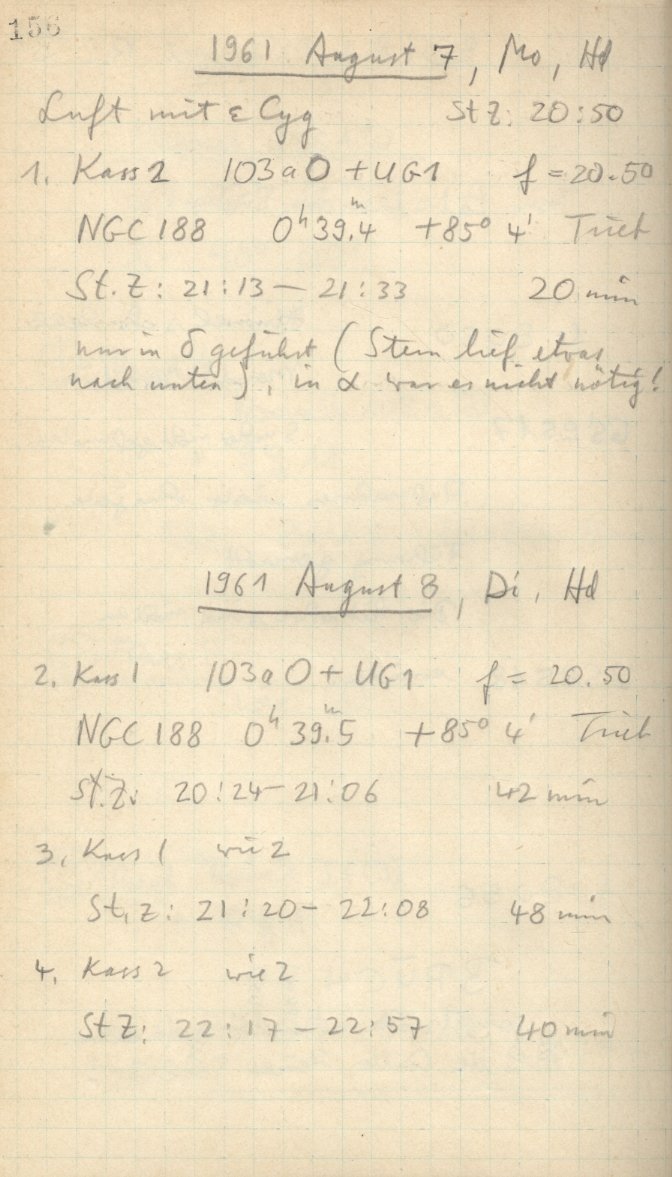 156
1961 August 7, Mo, Hd
Luft mit ε Cyg StZ: 20:50
1. Kass 2 103aO + UG1 f = 20.50
NGC 188 0ʰ 39ᵐ.4 +85° 4' Trieb
St.Z: 21:13 – 21:33 20 min
nur in δ geführt (Stern lief etwas
nach unten), in α war es nicht nötig!
1961 August 8, Di, Hd
2. Kass 1 103aO + UG1 f = 20.50
NGC 188 0ʰ 39ᵐ.5 +85° 4' Trieb
St.Z: 20:24 – 21:06 42 min
3. Kass 1 wie 2
St.Z: 21:20 – 22:08 48 min
4. Kass 2 wie 2
StZ: 22:17 – 22:57 40 min